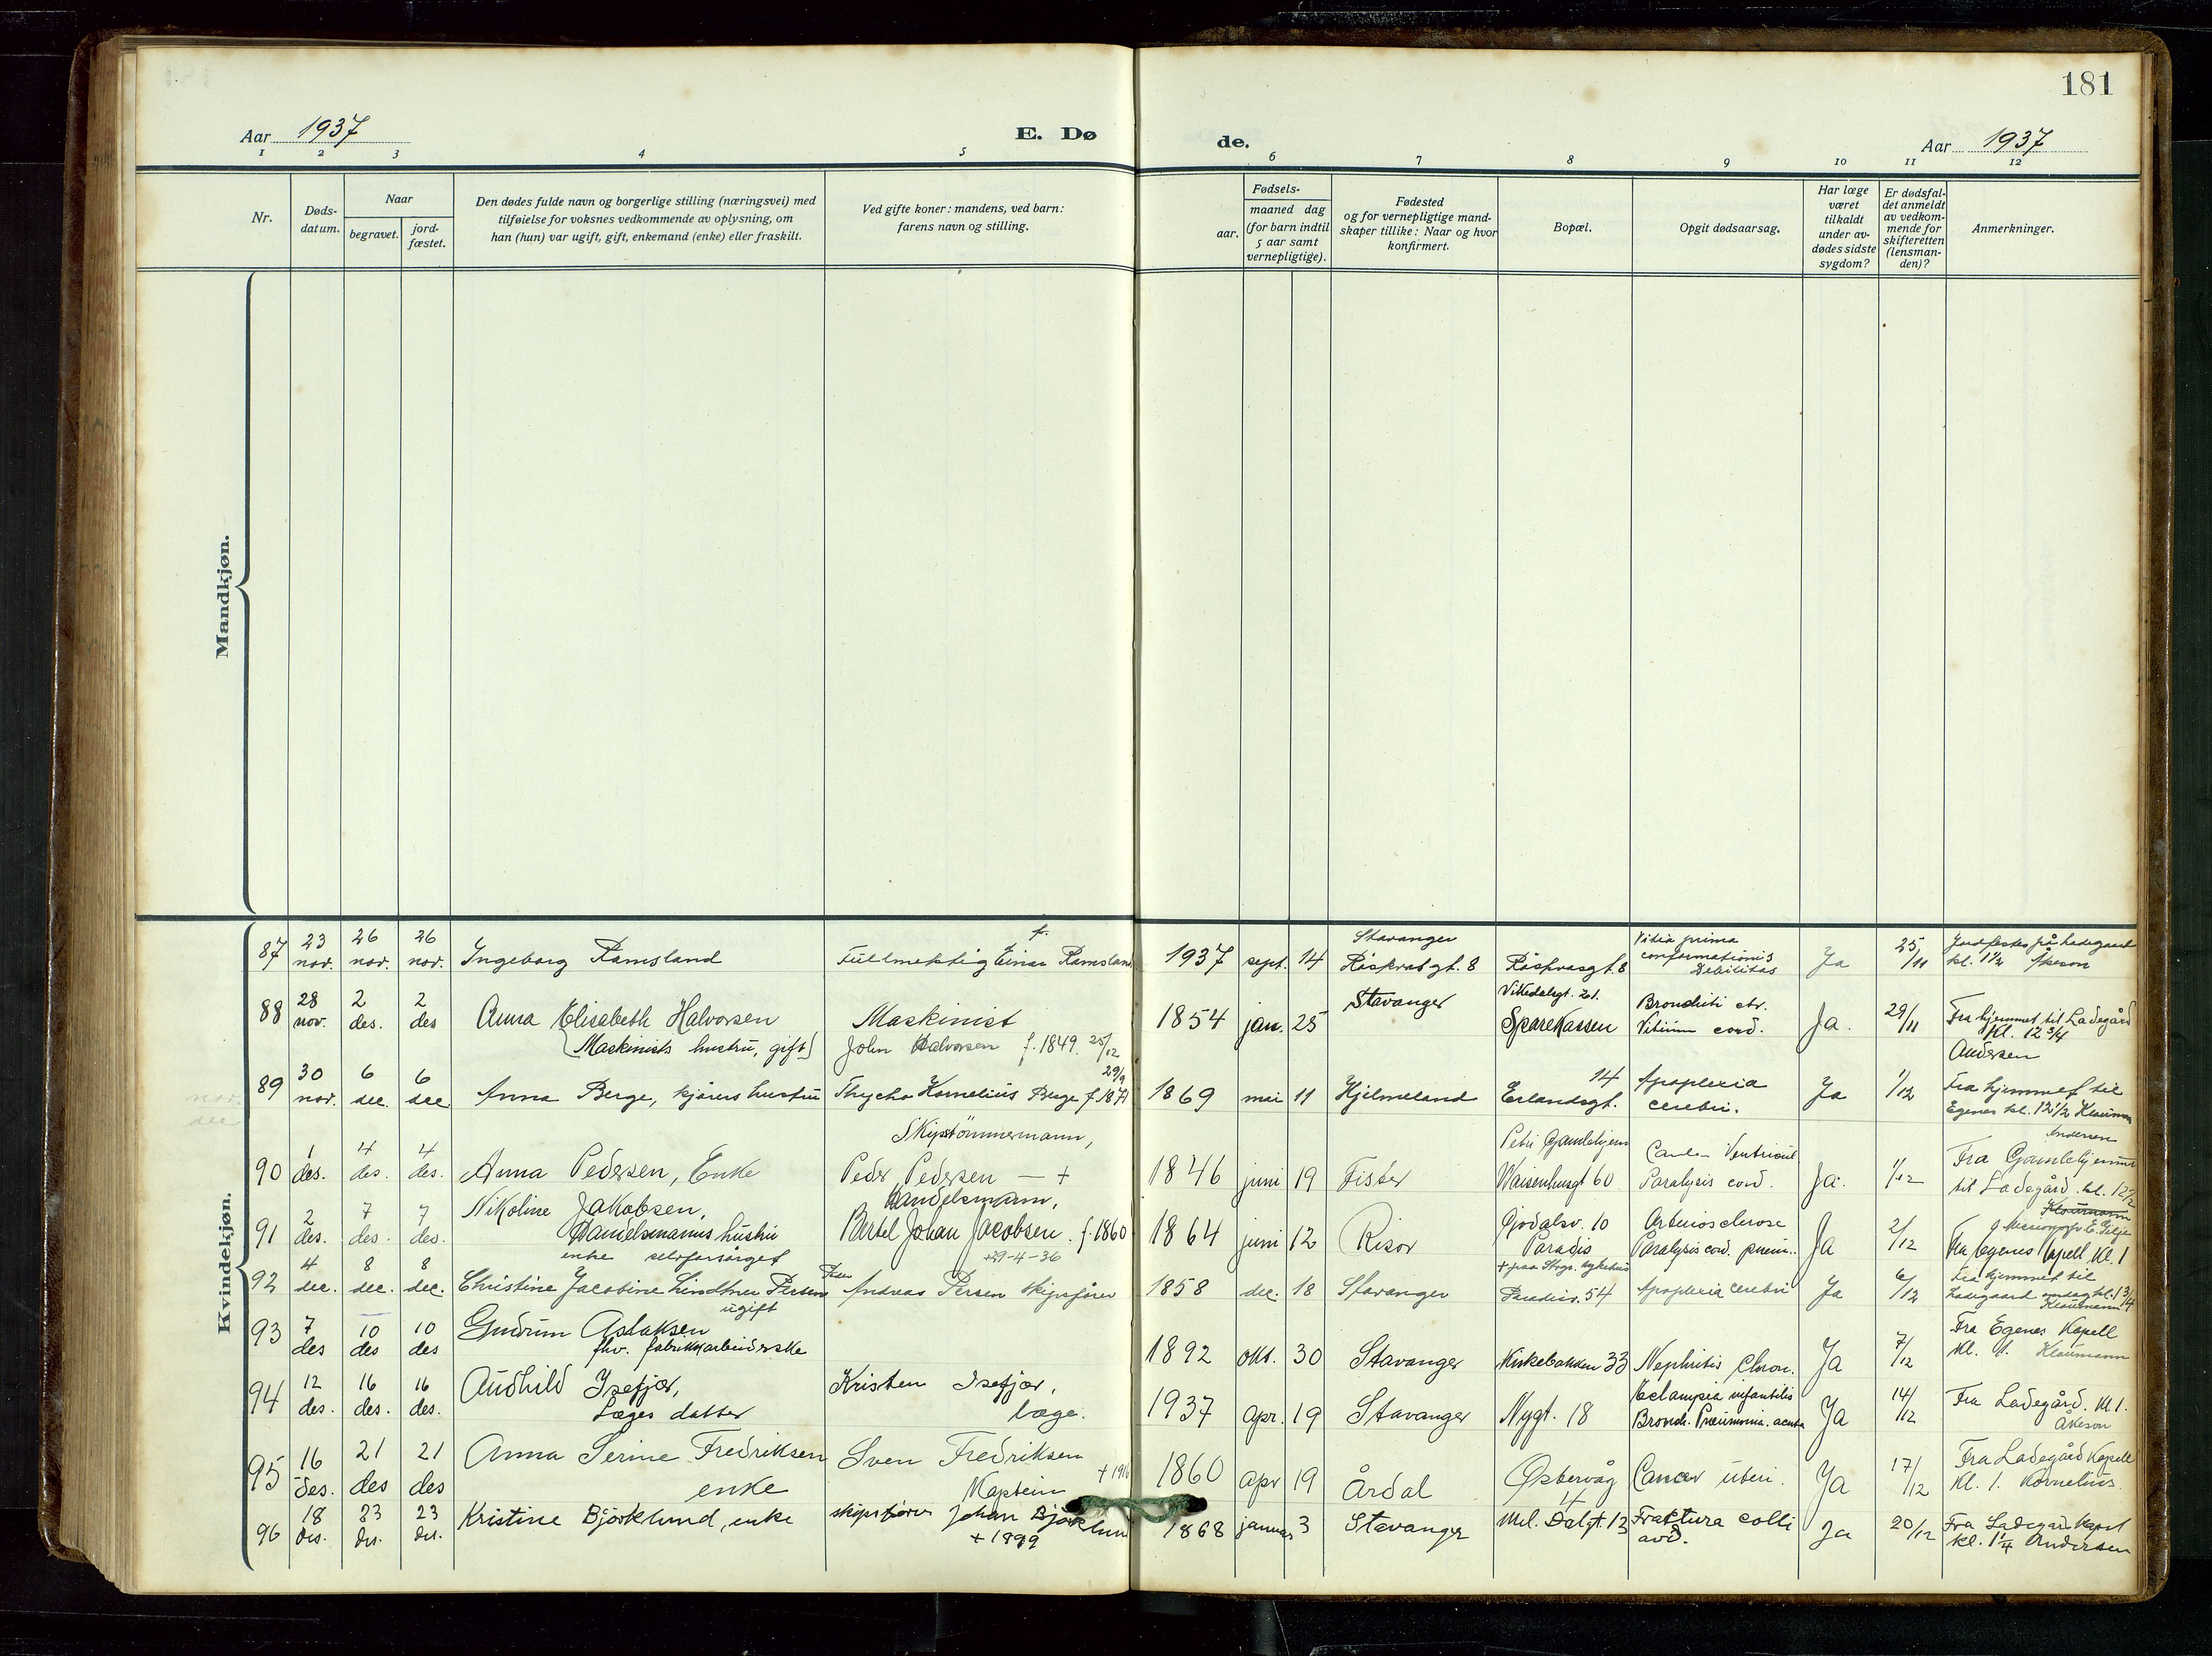 181
Aar 1937
E. Dø
de.
Aar 1937
1 2 3 4 5 6 7 8 9 10 11 12
Nr.
Døds-
datum.
Naar
begravet.
jord-
fæstet.
Den dødes fulde navn og borgerlige stilling (næringsvei) med
tilføielse for voksnes vedkommende av oplysning, om
han (hun) var ugift, gift, enkemand (enke) eller fraskilt.
Ved gifte koner: mandens, ved barn:
farens navn og stilling.
Fødsels-
aar.
maaned dag
(for barn indtil
5 aar samt
vernepligtige).
Fødested
og for vernepligtige mand-
skaper tillike: Naar og hvor
konfirmert.
Bopæl.
Opgit dødsaarsag.
Har læge
været
tilkaldt
under av-
dødes sidste
sygdom?
Er dødsfal-
det anmeldt
av vedkom-
mende for
skifteretten
(lensman-
den)?
Anmerkninger.
Mandkjøn.
Kvindekjøn.
87 23 nov. 26 nov. 26 nov. Ingeborg Ramsland
f.
Fullmektig Einar Ramsland
1937 sept. 14
Stavanger
Råskvatgt. 8
Råskvasgt. 8
Vitia prima
conformationis
Debilitas
Ja 25/11
Jordfestes på Ladegaard
kl. 1½ Åkeson
88 28 nov. 2 des. 2 des Anna Elisabeth Halvorsen
(Maskinists hustru, gift)
Maskinist
John Halvorsen f. 1849. 25/12
1854 jan. 25 Stavanger
Vikedalsgt. 21.
Sparekassen
Bronchiti chr.
Vitium cord.
Ja. 29/11
Fra hjemmet til Ladegård
Kl. 12 3/4
Andersen
89 30 nov. 6 dec. 6 dec. Anna Berge, kjørers hustru
29/9
Thycho Kornelius Berge f. 1871
1869 mai 11 Hjelmeland
14
Erlandsgt.
Apoplexia
cerebri.
Ja 1/12
Fra hjemmet til
Egenes kl. 12½ Klaumann
90 1 des. 4 des. 4 des. Anna Pedersen, Enke
Skipstømmermann,
Peder Pedersen — +
1846 juni 19 Fister
Petri Gamlehjem
Waisenhusgt 60
Cancer Ventricul
Paralysis cord.
Ja. 1/12
Andersen
Fra Gamlehjemmet
til Ladegård. kl. 12½
91 2 des. 7 des. 7 des. Nikoline Jakobsen,
Handelsmanns hustru
enke selvforsørget
Handelsmann,
Bertel Johan Jacobsen. f. 1860
+29-4-36
1864 juni 12 Risør
Gjodalsv. 10
Paradis
+ paa Stvgr. sykehus
Arteriosclerose
Paralysis cord. pneum..
Ja 2/12
Klaumann
Fra Egenes Kapell kl. 1
92 4 dec. 8 dec. 8 dec. Christine Jacobine Lindtner Persen
Andreas Persen skipsfører
1858 dec. 18 Stavanger Paradisv. 54 Apoplexia cerebri Ja 6/12
Fra hjemmet til
Ladegaard onsdag kl. 1 3/4
Klaumann
93 7 des 10 des 10 des
ugift
Gudrun Aslaksen
fhv. fabrikkarbeiderske
1892 okt. 30 Stavanger Kirkebakken 33 Nephritis chron. Ja 7/12
Fra Egenes Kapell
kl. 1. Klaumann
94 12 des. 16 des. 16 des. Audhild Isefjær,
Læges datter
Kristen Isefjær,
læge.
1937 Apr. 19 Stavanger Nygt. 18
Eclampsia infantilis
Bronch. Pneumonia. acuta
Ja 14/12
Fra Ladegård. Kl 1.
Åkeson
95 16 des. 21 des 21 des Anna Serine Fredriksen
enke
Sven Fredriksen
Kaptein
1860 Apr 19 Årdal
Østervåg
4
Cancer uteri. Ja 17/12
Fra Ladegård Kapell
Kl. 1. Kornelius.
96 18 des. 23 des. 23 des. Kristine Björklund, enke
skipsfører Johan Björklund
+ 1899
1868 januar 3 Stavanger Mel. Dalgt. 13
Fraktura colli
Ja 20/12
Fra Ladegård Kapel
kl. 1¼ Andersen